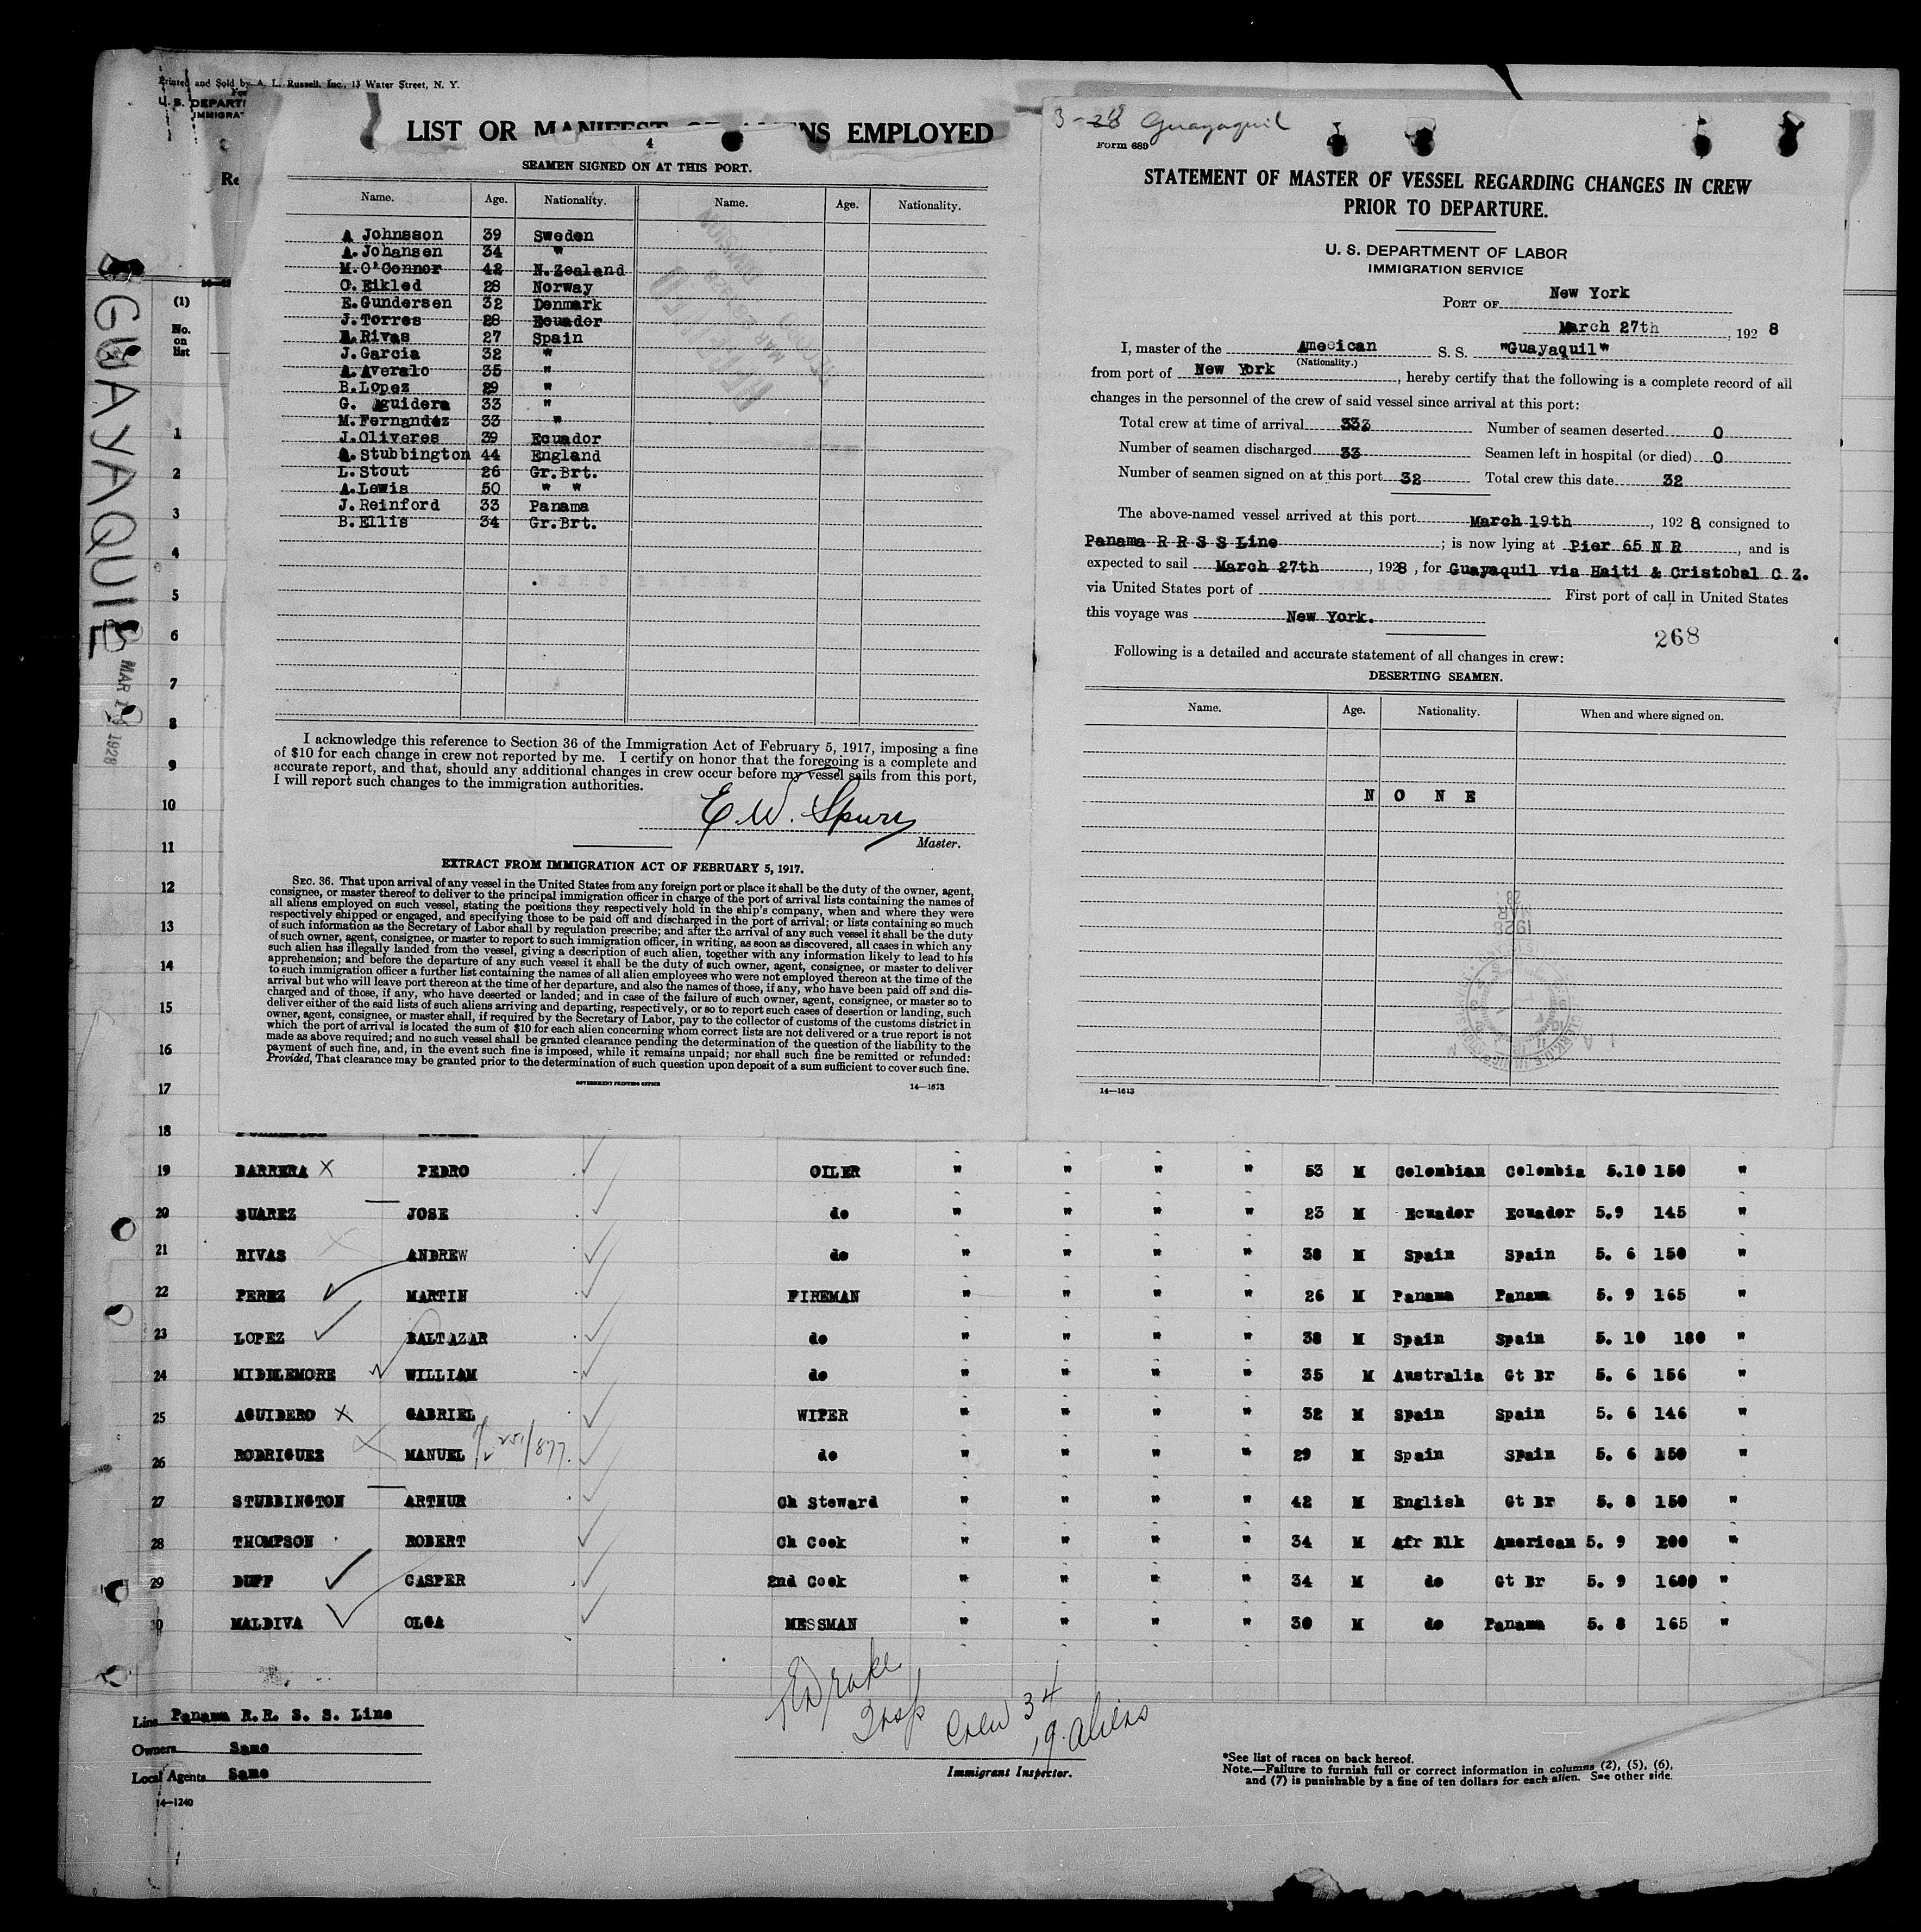 Printed and Sold by A. L. Russell, Inc., 13 Water Street, N. Y.
U. S. DEPART
IMMIGRA
LIST OR MANIFEST OF ALIENS EMPLOYED
4
SEAMEN SIGNED ON AT THIS PORT.
Name. Age. Nationality. Name. Age. Nationality.
A Johnsson 39 Sweden
A.Johansen 34 "
M.O'Connor 42 N.Zealand
O.Eikled 28 Norway
E.Gundersen 32 Denmark
J.Torres 28 Ecuador
Rivas 27 Spain
J.Garcia 32 "
A.Averalo 35 "
B.Lopez 29 "
G. Aguidera 33 "
M.Fernandez 33 "
J.Oliveres 39 Ecuador
A.Stubbington 44 England
L.Stout 26 Gr.Brt.
A.Lewis 50 " "
J.Reinford 33 Panama
B.Ellis 34 Gr.Brt.
I acknowledge this reference to Section 36 of the Immigration Act of February 5, 1917, imposing a fine
of $10 for each change in crew not reported by me. I certify on honor that the foregoing is a complete and
accurate report, and that, should any additional changes in crew occur before my vessel sails from this port,
I will report such changes to the immigration authorities.
E. W. Spurr
Master.
EXTRACT FROM IMMIGRATION ACT OF FEBRUARY 5, 1917.
SEC. 36. That upon arrival of any vessel in the United States from any foreign port or place it shall be the duty of the owner, agent,
consignee, or master thereof to deliver to the principal immigration officer in charge of the port of arrival lists containing the names of
all aliens employed on such vessel, stating the positions they respectively hold in the ship's company, when and where they were
respectively shipped or engaged, and specifying those to be paid off and discharged in the port of arrival; or lists containing so much
of such information as the Secretary of Labor shall by regulation prescribe; and after the arrival of any such vessel it shall be the duty
of such owner, agent, consignee, or master to report to such immigration officer, in writing, as soon as discovered, all cases in which any
such alien has illegally landed from the vessel, giving a description of such alien, together with any information likely to lead to his
apprehension; and before the departure of any such vessel it shall be the duty of such owner, agent, consignee, or master to deliver
to such immigration officer a further list containing the names of all alien employees who were not employed thereon at the time of the
arrival but who will leave port thereon at the time of her departure, and also the names of those, if any, who have been paid off and dis-
charged and of those, if any, who have deserted or landed; and in case of the failure of such owner, agent, consignee, or master so to
deliver either of the said lists of such aliens arriving and departing, respectively, or so to report such cases of desertion or landing, such
owner, agent, consignee, or master shall, if required by the Secretary of Labor, pay to the collector of customs of the customs district in
which the port of arrival is located the sum of $10 for each alien concerning whom correct lists are not delivered or a true report is not
made as above required; and no such vessel shall be granted clearance pending the determination of the question of the liability to the
payment of such fine, and, in the event such fine is imposed, while it remains unpaid; nor shall such fine be remitted or refunded:
Provided, That clearance may be granted prior to the determination of such question upon deposit of a sum sufficient to cover such fine.
GOVERNMENT PRINTING OFFICE 14—1613
3-28 Guayaquil
Form 689
STATEMENT OF MASTER OF VESSEL REGARDING CHANGES IN CREW
PRIOR TO DEPARTURE.
U. S. DEPARTMENT OF LABOR
IMMIGRATION SERVICE
PORT OF New York
March 27th, 1928
I, master of the Ameeican S. S. "Guayaquil"
(Nationality.)
from port of New York, hereby certify that the following is a complete record of all
changes in the personnel of the crew of said vessel since arrival at this port:
Total crew at time of arrival 33 Number of seamen deserted 0
Number of seamen discharged 33 Seamen left in hospital (or died) 0
Number of seamen signed on at this port 32 Total crew this date 32
The above-named vessel arrived at this port March 19th, 1928 consigned to
Panama R R S S Line; is now lying at Pier 65 N R, and is
expected to sail March 27th, 1928, for Guayaquil via Haiti & Cristobal C Z.
via United States port of First port of call in United States
this voyage was New York.
268
Following is a detailed and accurate statement of all changes in crew:
DESERTING SEAMEN.
Name. Age. Nationality. When and where signed on.
N O N E
14—1613
GUAYAQUIL
MAR 1928
(1)
No. on list
1
2
3
4
5
6
7
8
9
10
11
12
13
14
15
16
17
18
19 BARRERA X PEDRO OILER " " " " 53 M Colombian Colombia 5.10 150 "
20 SUAREZ JOSE do " " " " 23 M Ecuador Ecuador 5.9 145 "
21 RIVAS ANDREW do " " " " 38 M Spain Spain 5. 6 150 "
22 PEREZ MARTIN FIREMAN " " " " 26 M Panama Panama 5. 9 165 "
23 LOPEZ BALTAZAR do " " " " 38 M Spain Spain 5. 10 180 "
24 MIDDLEMORE WILLIAM do " " " " 35 M Australia Gt Br 5. 6 156 "
25 AGUIDERO X GABRIEL WIPER " " " " 32 M Spain Spain 5. 6 146 "
26 RODRIGUEZ X MANUEL do " " " " 29 M Spain Spain 5. 6 150 "
27 STUBBINGTON ARTHUR Ch Steward " " " " 42 M English Gt Br 5. 8 150 "
28 THOMPSON ROBERT Ch Cook " " " " 34 M Afr Blk American 5. 9 200 "
29 DUFF CASPER 2nd Cook " " " " 34 M do Gt Br 5. 9 1600 "
30 MALDIVA OLGA MESSMAN " " " " 30 M do Panama 5. 8 165 "
Line Panama R.R. S. S. Line
Owners Same
Local Agents Same
14—1240
Drake
Insp Crew 34
19 aliens
Immigrant Inspector.
*See list of races on back hereof.
Note.—Failure to furnish full or correct information in columns (2), (5), (6),
and (7) is punishable by a fine of ten dollars for each alien. See other side.